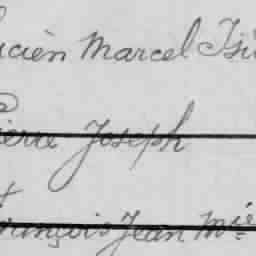 ucien Marcel Isi
ierre Joseph
rançois Jean Mie